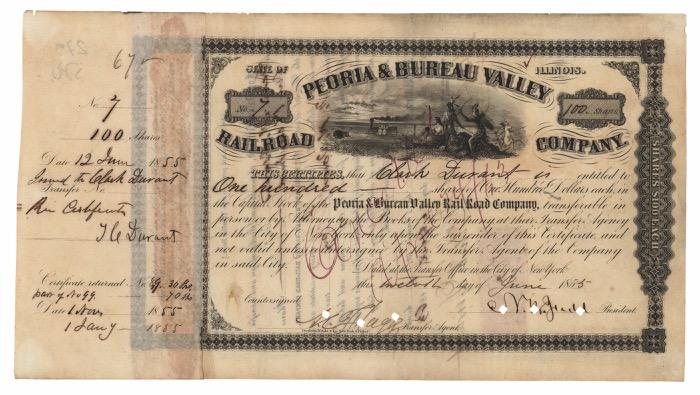 67
No. 7
100 Shares
Date 12 June 1855
Issued to Clark Durant
Transfer No.
Rec Certificate
T C Durant
Certificate returned No.
part of No 99.
Date 1 Nov 1855
1 Jany 1855
STATE OF ILLINOIS.
PEORIA & BUREAU VALLEY
No. 7.
100 Shares
RAILROAD COMPANY.
THIS CERTIFIES, that Clark Durant is entitled to
One hundred shares of One Hundred Dollars each, in
the Capital Stock of the Peoria & Bureau Valley Rail Road Company, transferable in
person or by Attorney, on the Books of the Company at their Transfer Agency
in the City of New York only upon the surrender of this Certificate, and
not valid unless countersigned by the Transfer Agent of the Company
in said City.
Dated at the Transfer Office in the City of New York
this twelvth day of June 1855
Countersigned
N. B. Judd President
Transfer Agent.
SHARES $100 EACH.